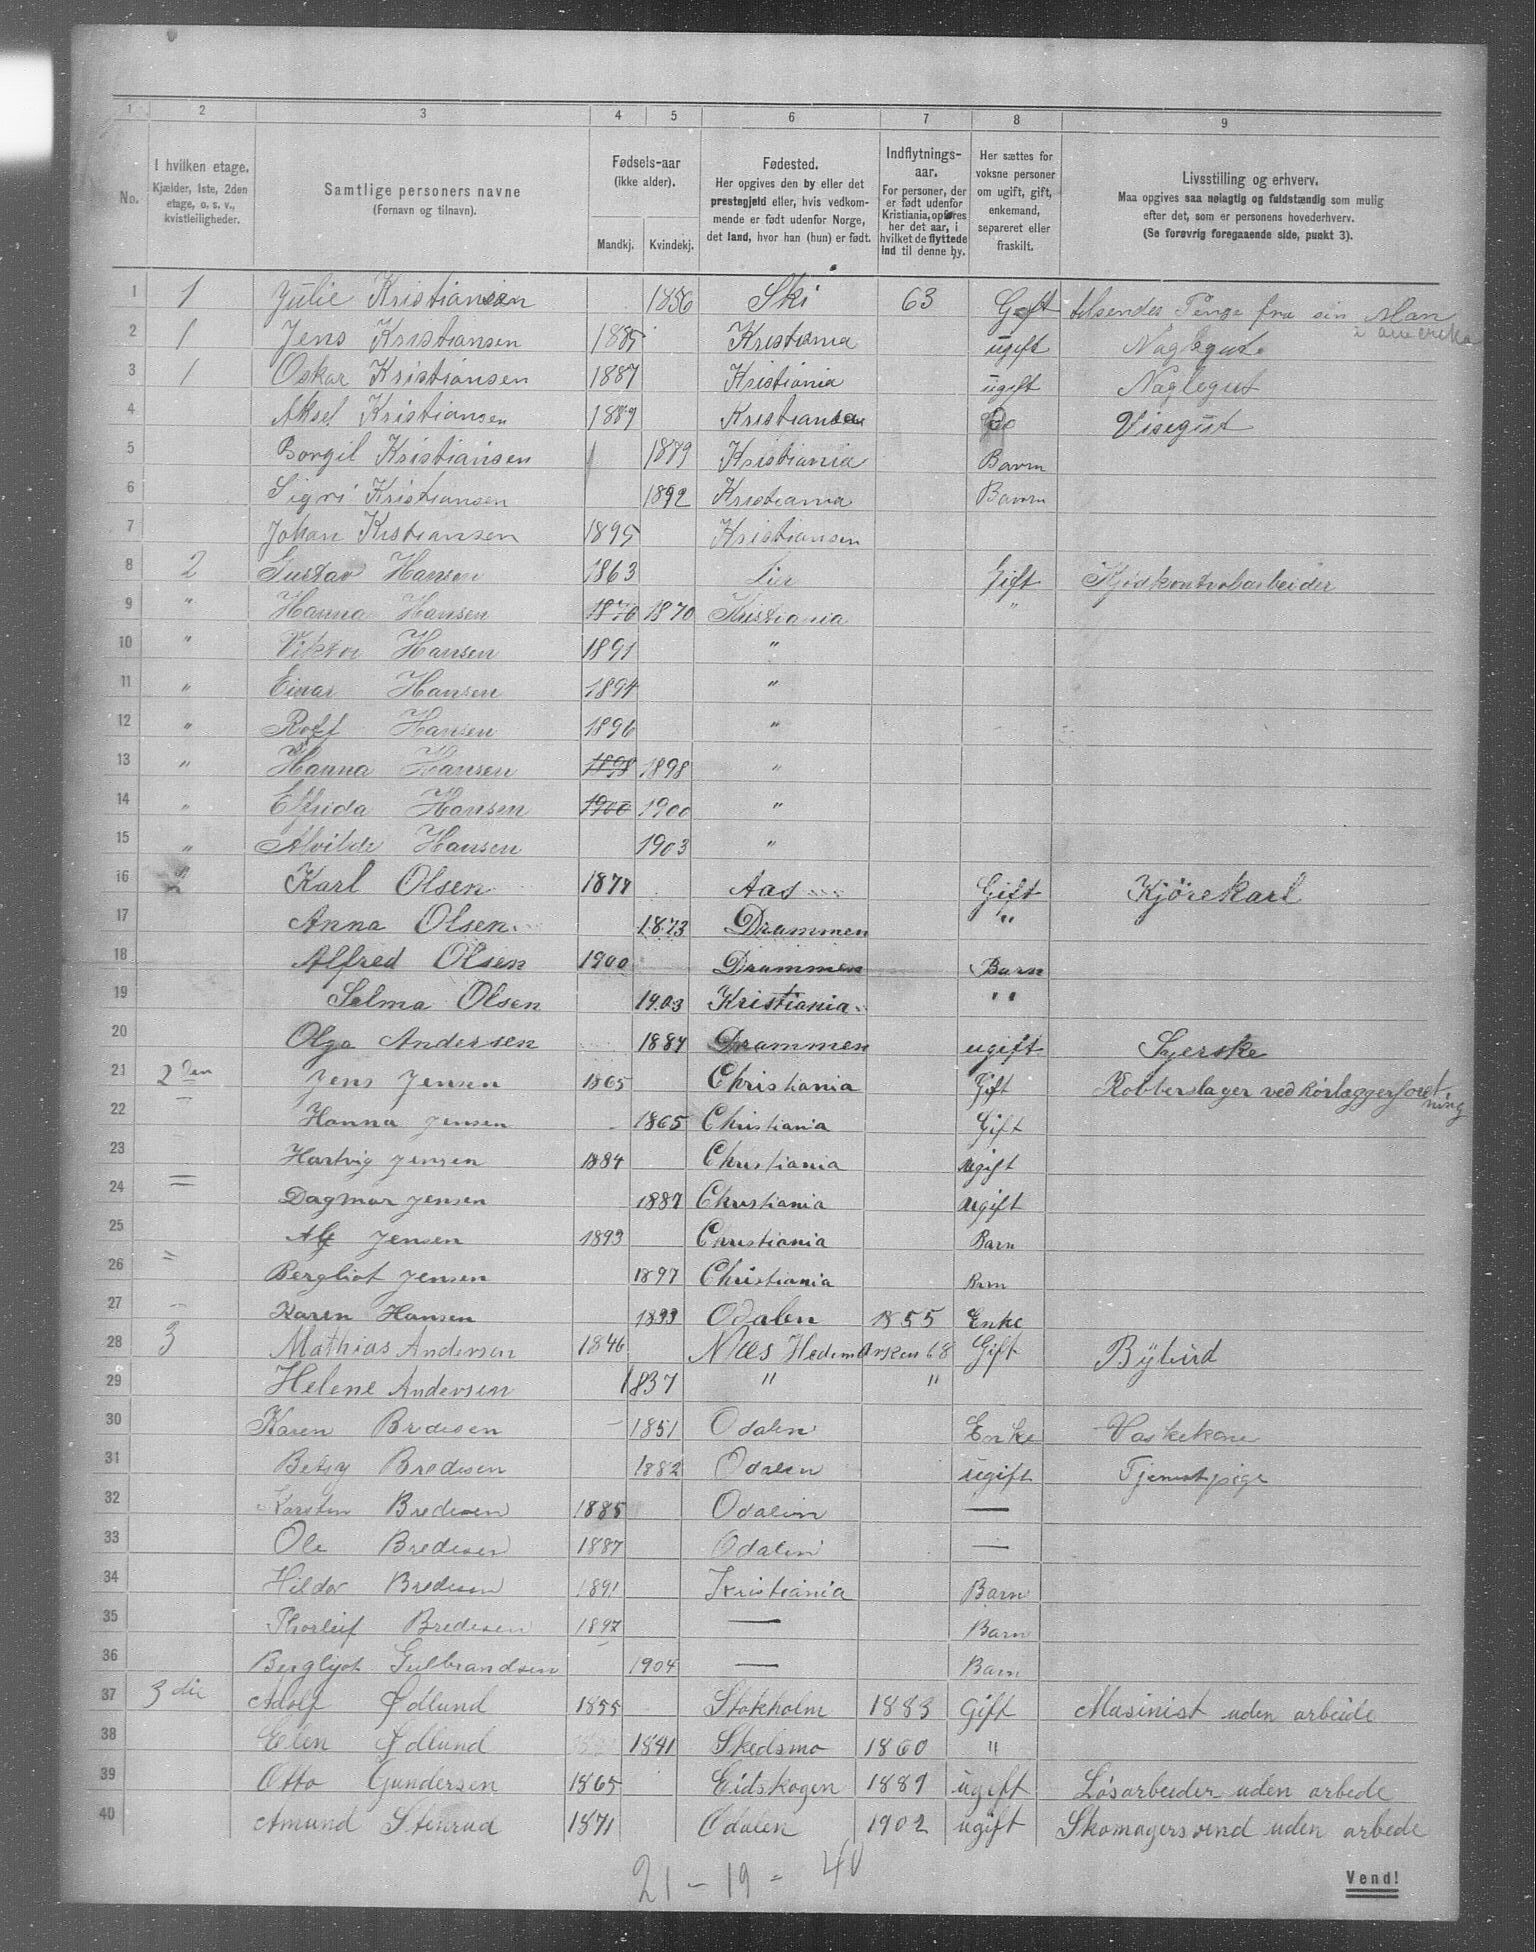 1 2 3 4 5 6 7 8 9
No. I hvilken etage. Kjælder, 1ste, 2den etage, o. s. v., kvistleiligheder. Samtlige personers navne (Fornavn og tilnavn). Fødsels-aar (ikke alder). Mandkj. Kvindekj. Fødested. Her opgives den by eller det prestegjeld eller, hvis vedkommende er født udenfor Norge, det land, hvor han (hun) er født. Indflytnings-aar. For personer, der er født udenfor Kristiania, opføres her det aar, i hvilket de flyttede ind til denne by. Her sættes for voksne personer om ugift, gift, enkemand, separeret eller fraskilt. Livsstilling og erhverv. Maa opgives saa nøiagtig og fuldstændig som mulig efter det, som er personens hovederhverv. (Se forøvrig foregaaende side, punkt 3).
1 1 Julie Kristiansen 1856 Ski 63 Gift tilsendes Penge fra sin Man i amerika
2 1 Jens Kristiansen 1885 Kristiania ugift Naglegut
3 1 Oskar Kristiansen 1887 Kristiania ugift Naglegut
4 Aksel Kristiansen 1889 Kristiania Visegut
5 Borgil Kristiansen 1879 Kristiania Barn
6 Sigri Kristiansen 1892 Kristiania Barn
7 Johan Kristiansen 1895 Kristiansen
8 2 Gustav Hansen 1863 Lier Gift
9 " Hanna Hansen 1870 1870 Kristiania "
10 " Viktor Hansen 1891 "
11 " Einar Hansen 1894 "
12 " Rolf Hansen 1896 "
13 " Hanna Hansen 1898 1898 "
14 " Elfrida Hansen 1900 1900 "
15 " Alvilde Hansen 1903 "
16 Karl Olsen 1877 Aas Gift Kjörekarl
17 Anna Olsen 1873 Drammen "
18 Alfred Olsen 1900 Drammen Barn
19 Selma Olsen 1903 Kristiania "
20 Olga Andersen 1884 Drammen ugift Syerske
21 2den Jens Jensen 1865 Christiania Gift Kobberslager ved Rörlæggerforetning
22 Hanna Jensen 1865 Christiania Gift
23 Hartvig Jensen 1884 Christiania ugift
24 Dagmar Jensen 1887 Christiania ugift
25 Alf Jensen 1893 Christiania Barn
26 " Bergliot Jensen 1897 Christiania Barn
27 Karen Hansen 1833 Odalen 1855 Enke
28 3 Mathias Andersen 1846 Næs Hedemarken 68 Gift Bybud
29 Helene Andersen 1837 " "
30 Karen Bredesen 1851 Odalen Enke Vaskekone
31 Betsy Bredesen 1882 Odalen ugift Tjenestpige
32 Karsten Bredesen 1885 Odalen —
33 Ole Bredesen 1887 Odalen —
34 Hildor Bredesen 1891 Kristiania Barn
35 Thorleif Bredesen 1897 — Barn
36 Bergljot Gulbrandsen 1904 — Barn
37 3die Adolf Ødlund 1855 Stokholm 1883 Gift Masinist uden arbeide
38 Elen Ødlund 1841 Skedsmo 1860 "
39 Otto Gundersen 1865 Eidskogen 1889 ugift Løsarbeider uden arbede
40 Amund Stenrud 1871 Odalen 1902 ugift Skomagersvend uden arbede
21 - 19 = 40
Vend!